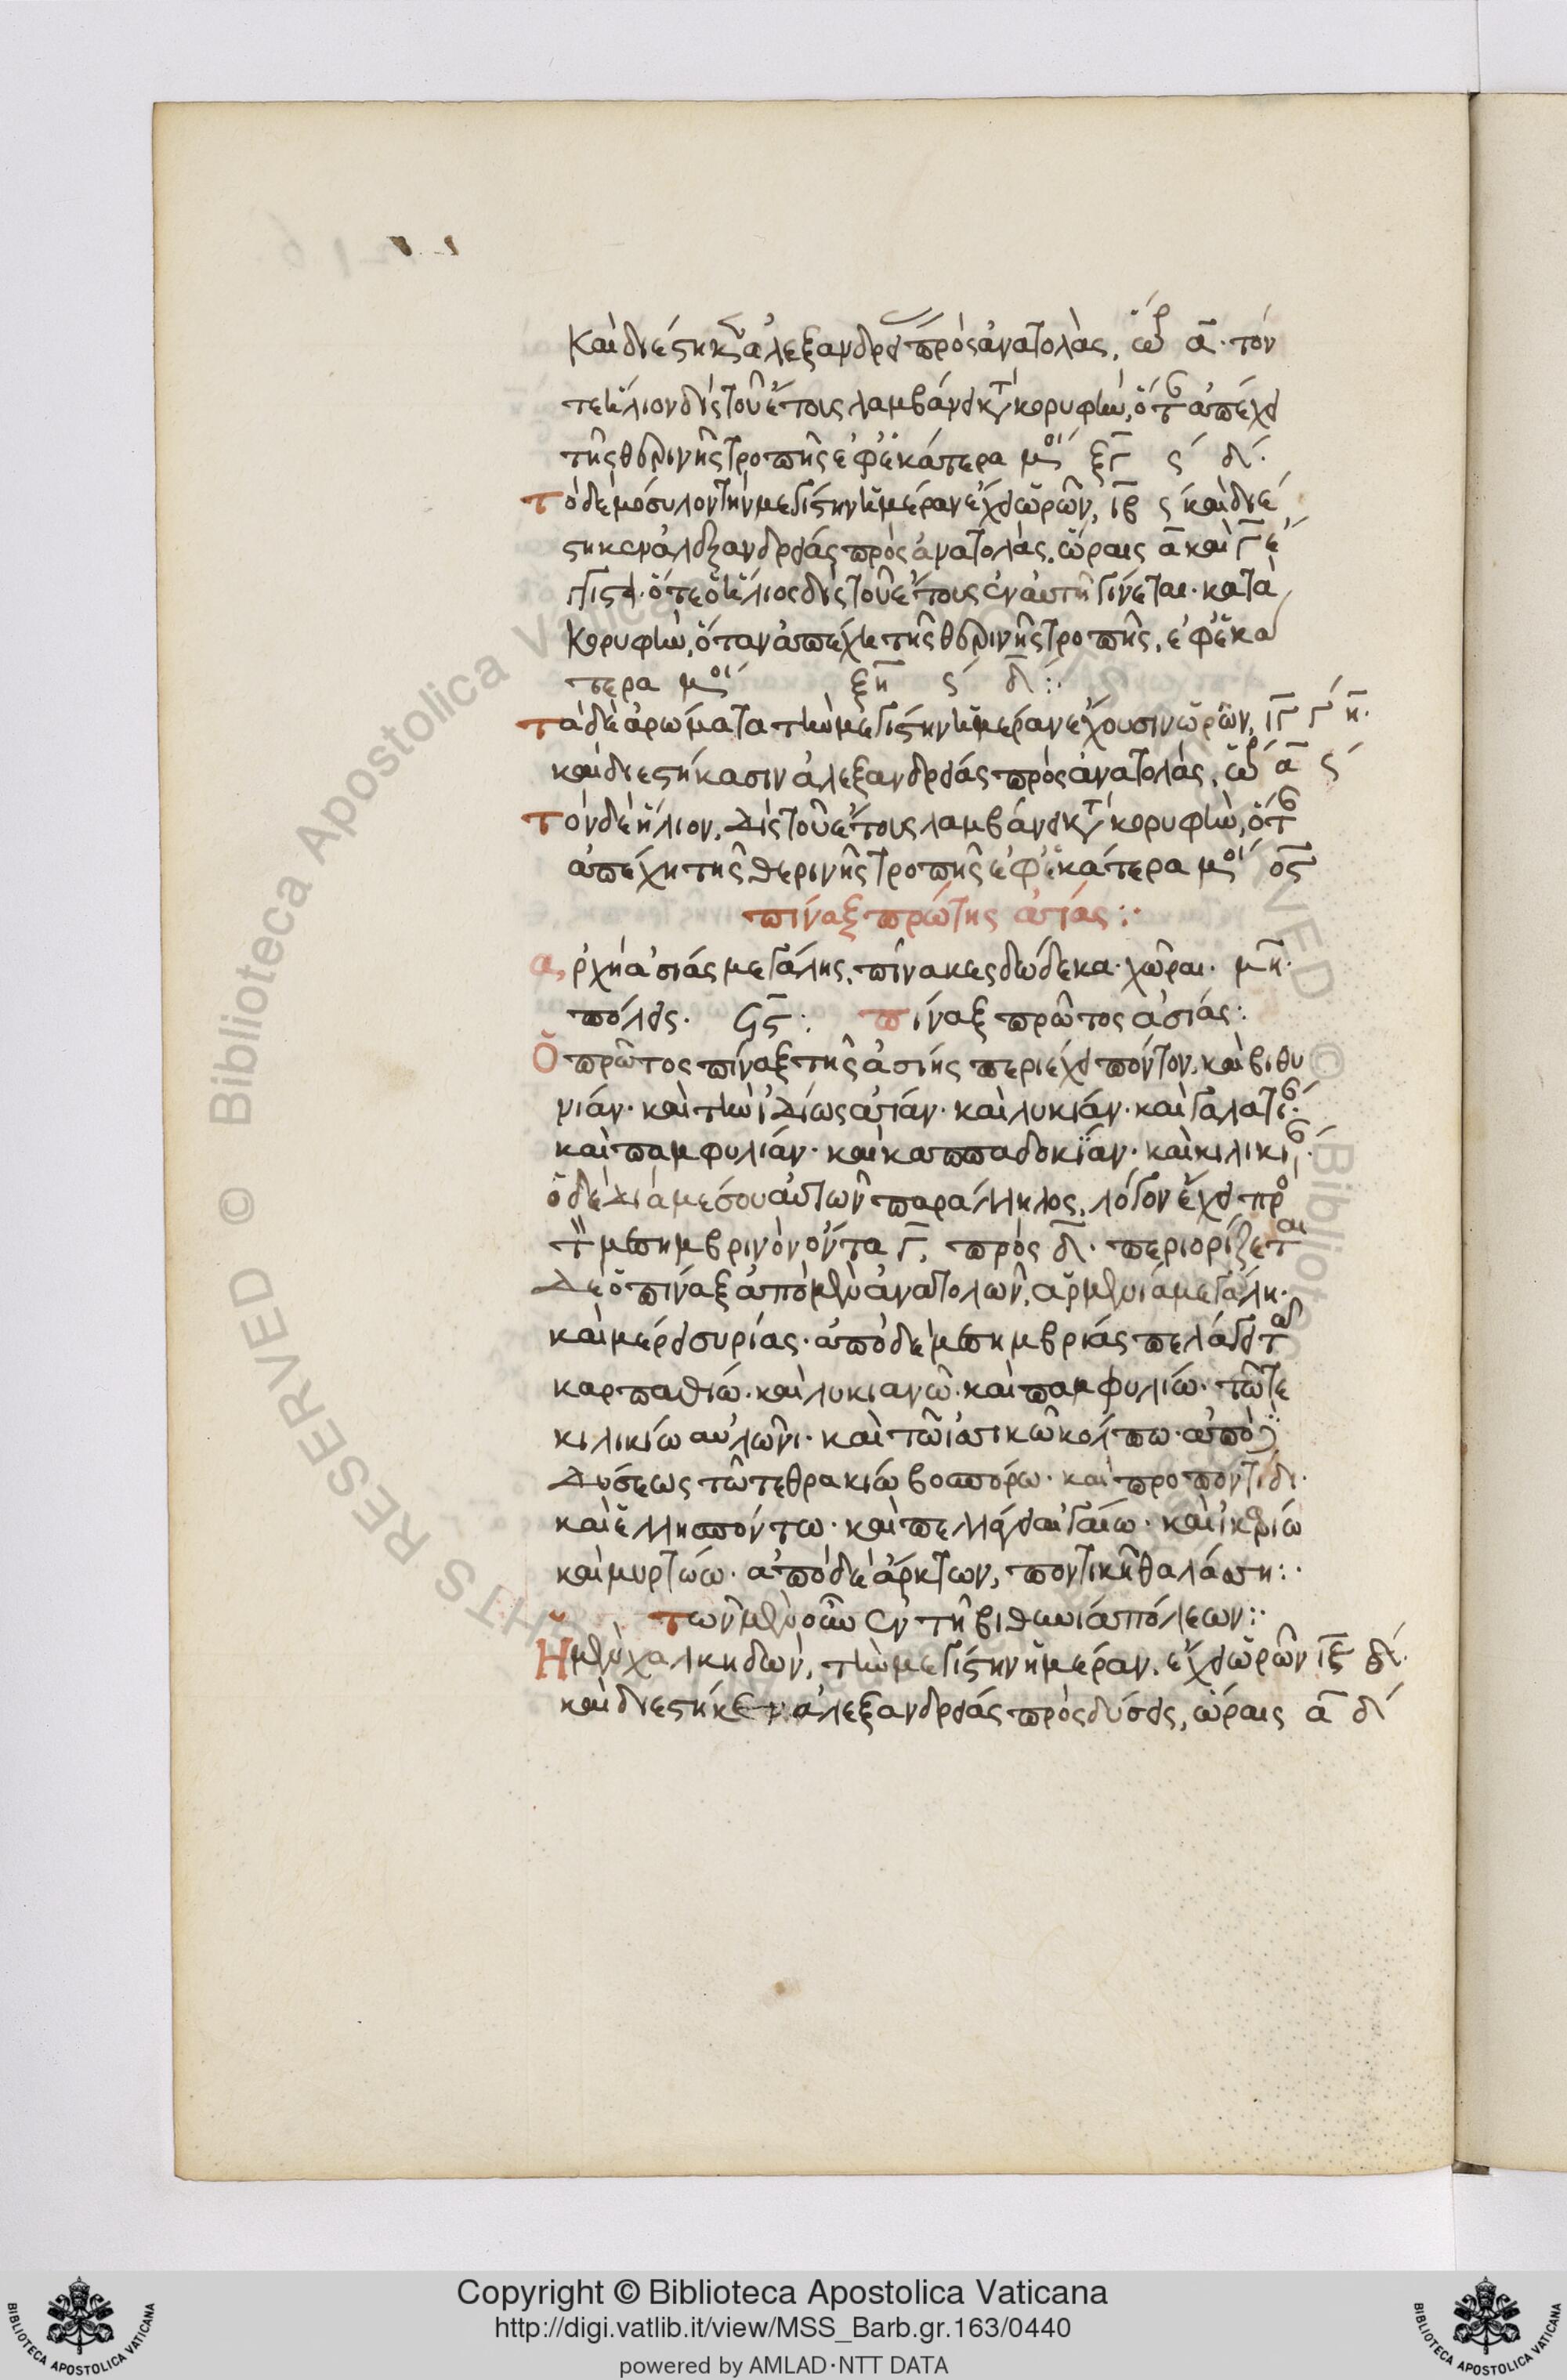 καὶ διέστηκεν ἀλεξανδρείας πρὸς ἀνατολὰς, ὥρ α. τόν
τε ἥλιον δὶς τοῦ ἔτους λαμβάνει κτ κορυφὴν, ὅτ ἀπέχει
τῆς θερινῆς τροπῆς ἐφ ἑκάτερα μοι ξγ ς δ.
τὸ δὲ μόσυλον τὴν μεγίστην ἡμέραν ἔχει ὡρῶν, ιβ ς καὶ διέ
στηκεν ἀλεξανδρείας πρὸς ἀνατολὰς, ὥραις α καὶ γ ἐγ
γιστα. ὅτε ὁ ἥλιος δὶς τοῦ ἔτους ἐν αὐτῆ γίνεται. κατὰ
κορυφὴν, ὅταν ἀπέχη τῆς θερινῆς τροπῆς, ἐφ ἑκα
τερα μοι ξη ς δ :
τὰ δὲ ἀρώματα τὴν μεγίστην ἡμέραν ἔχουσιν ὡρῶν, ιγ γ η.
καὶ διεστήκασιν ἀλεξανδρείας πρὸς ἀνατολὰς, ὥρ α ς
τὸν δὲ ἥλιον, δὶς τοῦ ἔτους λαμβάνει κτ κορυφὴν, ὅτ
ἀπέχη τῆς θερινῆς τροπῆς ἐφ ἑκάτερα μοι ος
πίναξ πρώτης ἀσίας :
αρχὴ ἀσίας μεγάλης, πίνακες δώδεκα. χῶραι. μη.
πόλεις. Ϟς : πίναξ πρῶτος ἀσίας :
Ὁ πρῶτος πίναξ τῆς ἀσίης περιέχει πόντον, καὶ βιθυ
νιάν. καὶ τὴν ἰδίως ἀσίαν. καὶ λυκιάν. καὶ γαλατι.
καὶ παμφυλιάν. καὶ καππαδοκίαν. καὶ κιλικι.
ὁ δὲ διὰ μέσου αὐτῶν παράλληλος, λόγον ἔχει πρὸ
τ μεσημβρινὸν ὄντα γ, πρὸς δ. περιορίζεται
δὲ ὁ πίναξ ἀπὸ μὲν ἀνατολῶν, ἀρμενία μεγάλη.
καὶ μέρει συρίας. ἀπὸ δὲ μεσημβρίας πελάγει τ
καρπαθίω. καὶ λυκιανῶ. καὶ παμφυλίω. τῶ τε
κιλικίω αὐλῶνι. καὶ τῶ ἰσικῶ κολπω. ἀπὸ δὲ
δύσεως τῶ τε θρακιω βοσπόρω. καὶ προποντίδι.
καὶ ἑλλησπόντω. καὶ πελλάγει αἰγαίω. καὶ ἰκαρίω
καὶ μυρτώω. ἀπὸ δὲ ἄρκτων, ποντικῆ θαλάσση :
τῶν μὲν οὖν ἐν τῆ βιθυνία πόλεων :
Ἡ μὲν χαλκηδών, τὴν μεγίστην ἡμέραν, ἔχει ὡρῶν ιε δ.
καὶ διεστήκεν ἀλεξανδρείας πρὸς δύσεις, ὥραις α δ
Copyright © Biblioteca Apostolica Vaticana
http://digi.vatlib.it/view/MSS_Barb.gr.163/0440
powered by AMLAD·NTT DATA